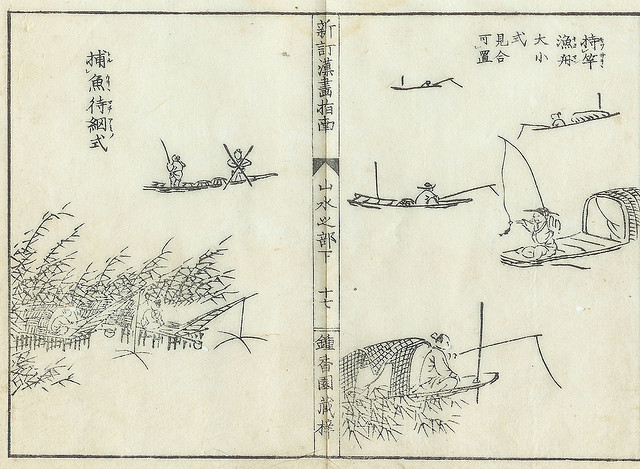 持竿
漁舟
大小
式
見合
可置
新訂漢畫指南
山水之部下
十七
香園藏梓
捕魚待網式